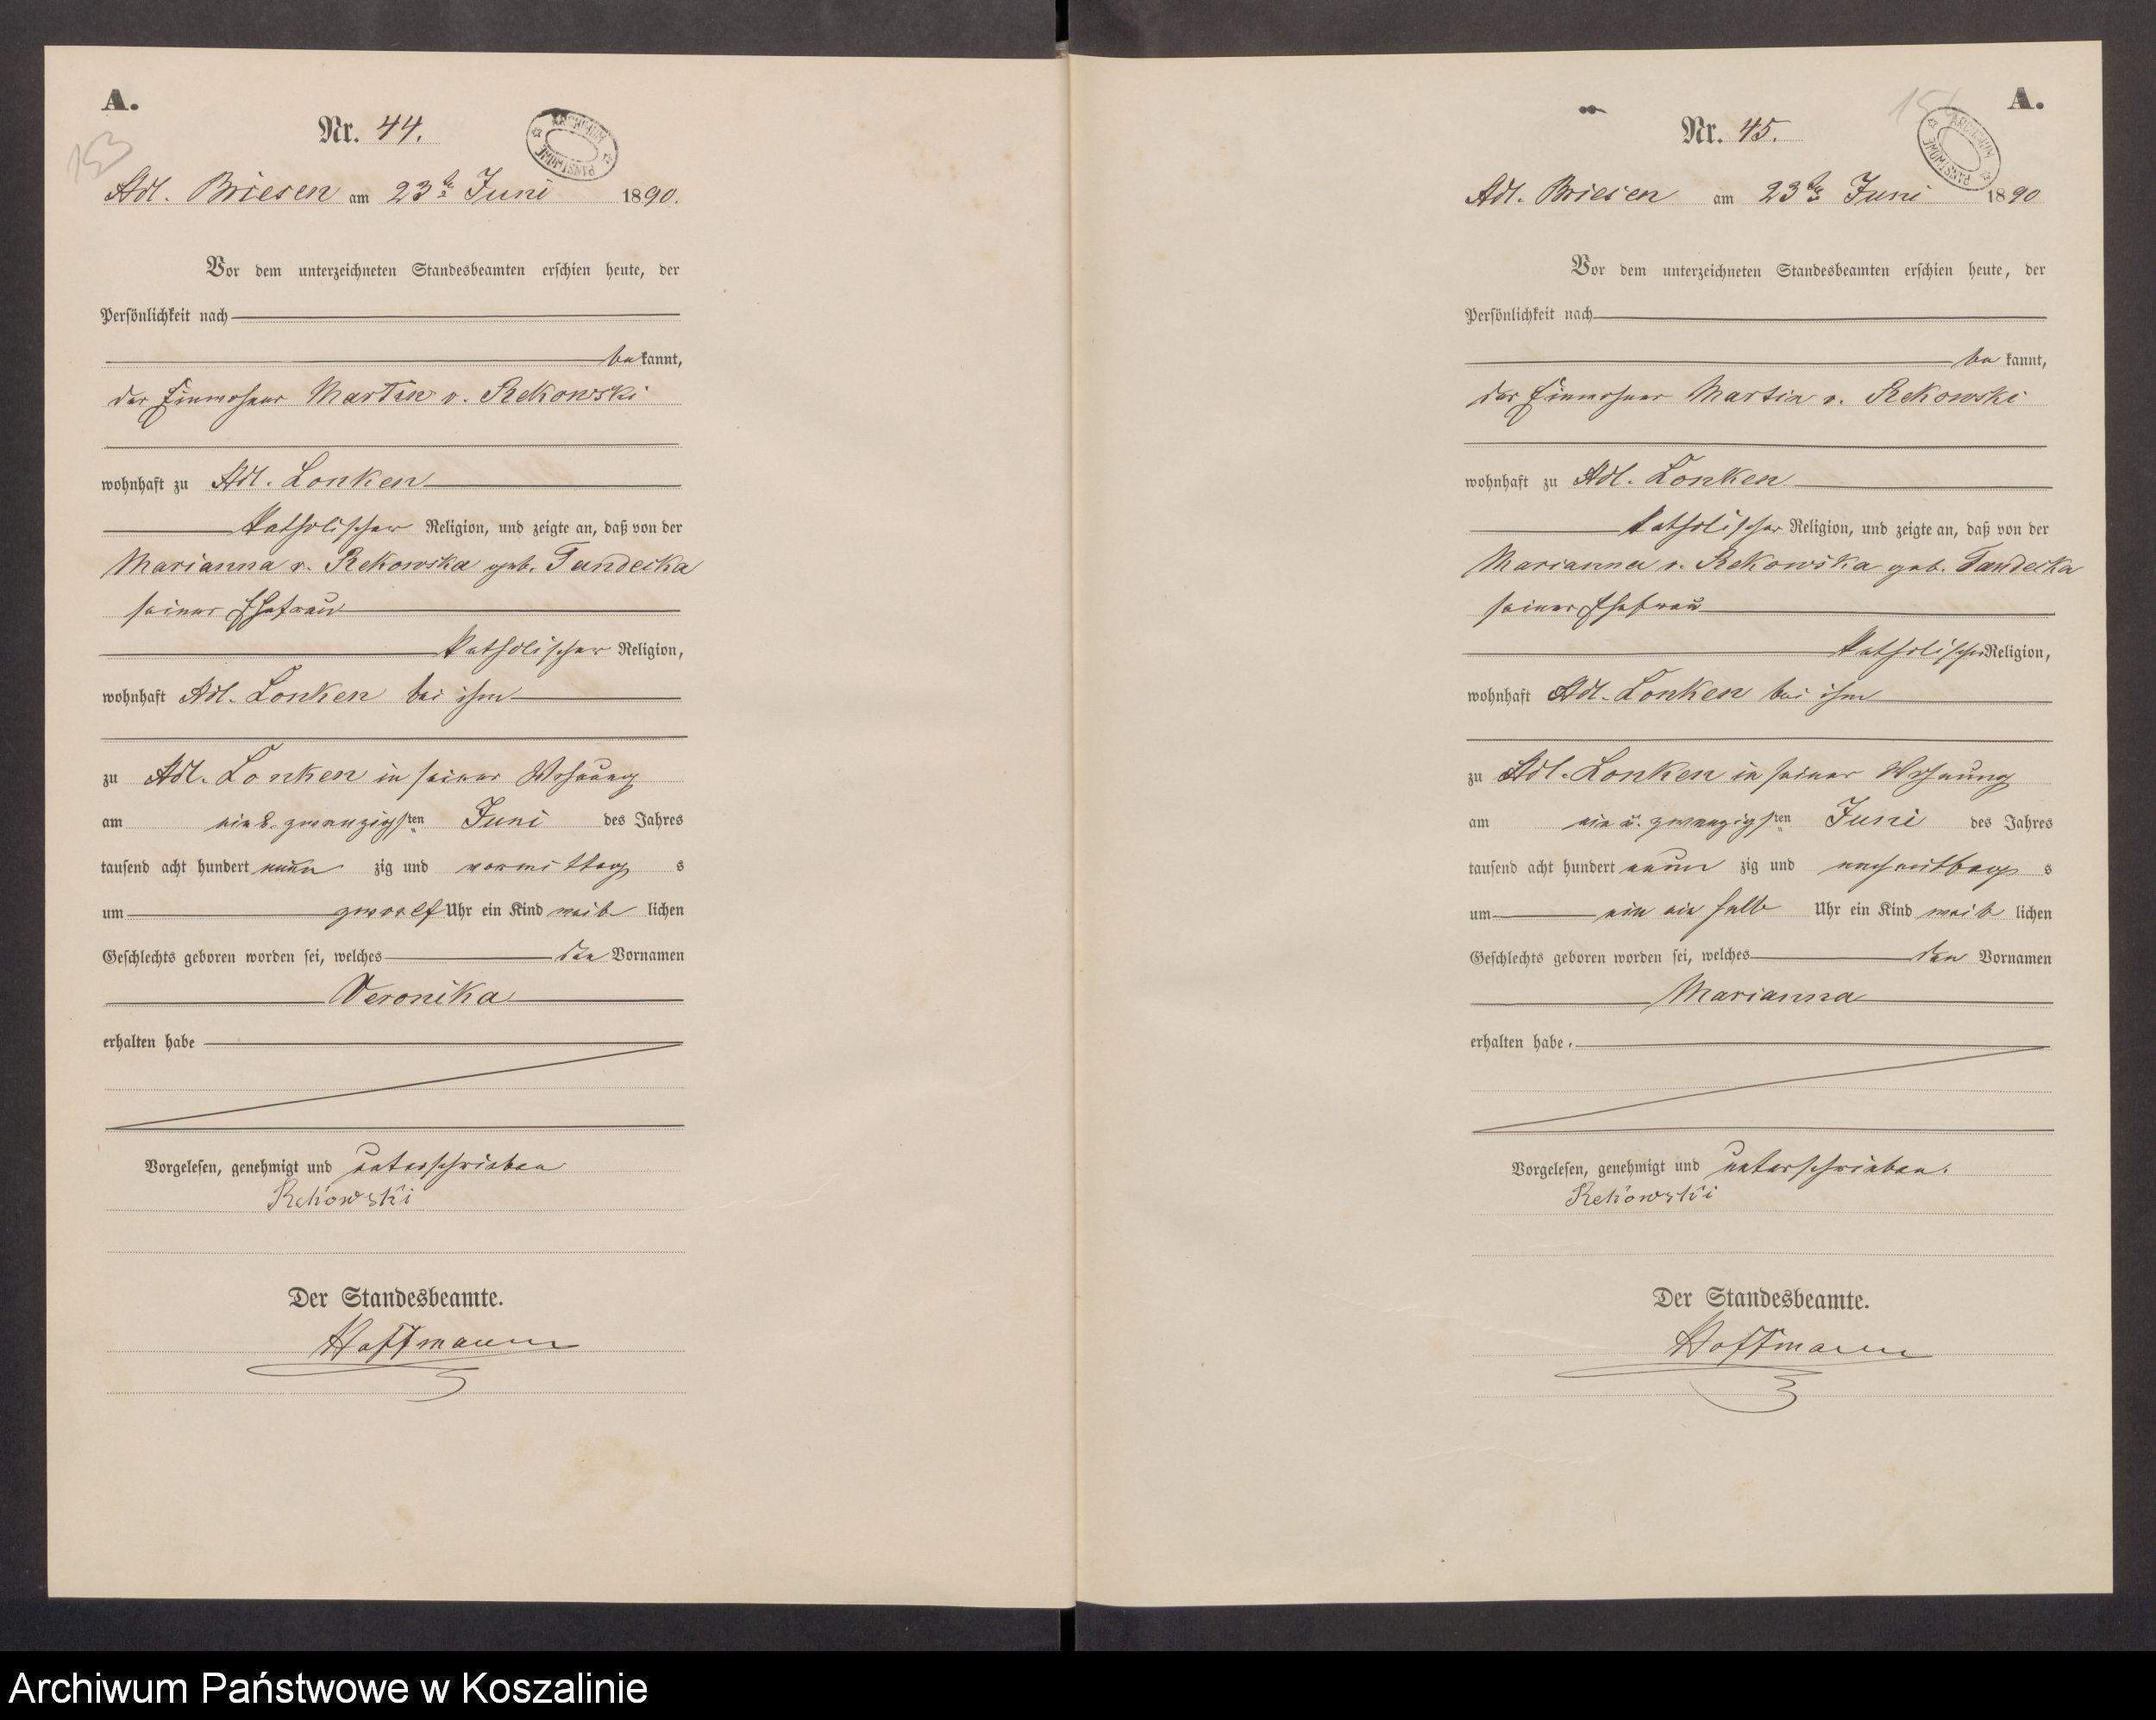 A.
Nr. 44.
153
ARCHIWUM PAŃSTWOWE
Adl. Briesen am 23ten Juni 1890.
Vor dem unterzeichneten Standesbeamten erschien heute, der
Persönlichkeit nach
bekannt,
der Einwohner Martin v. Rekowski
wohnhaft zu Adl. Lonken
katholischer Religion, und zeigte an, daß von der
Marianna v. Rekowska geb. Tandecka
seiner Ehefrau
katholischer Religion,
wohnhaft Adl. Lonken bei ihm
zu Adl. Lonken in seiner Wohnung
am ein u. zwanzigsten Juni des Jahres
tausend acht hundert neunzig und vormittags
um zwoelf Uhr ein Kind weiblichen
Geschlechts geboren worden sei, welches den Vornamen
Veronika
erhalten habe
Vorgelesen, genehmigt und unterschrieben
Rekowski
Der Standesbeamte.
Hoffmann
A.
Nr. 45.
ARCHIWUM PAŃSTWOWE
Adl. Briesen am 23ten Juni 1890
Vor dem unterzeichneten Standesbeamten erschien heute, der
Persönlichkeit nach
bekannt,
der Einwohner Martin v. Rekowski
wohnhaft zu Adl. Lonken
katholischer Religion, und zeigte an, daß von der
Marianna v. Rekowska geb. Tandecka
seiner Ehefrau
katholischer Religion,
wohnhaft Adl. Lonken bei ihm
zu Adl. Lonken in seiner Wohnung
am ein u. zwanzigsten Juni des Jahres
tausend acht hundert neunzig und nachmittags
um ein ein halb Uhr ein Kind weiblichen
Geschlechts geboren worden sei, welches den Vornamen
Marianna
erhalten habe.
Vorgelesen, genehmigt und unterschrieben.
Rekowski
Der Standesbeamte.
Hoffmann
Archiwum Państwowe w Koszalinie